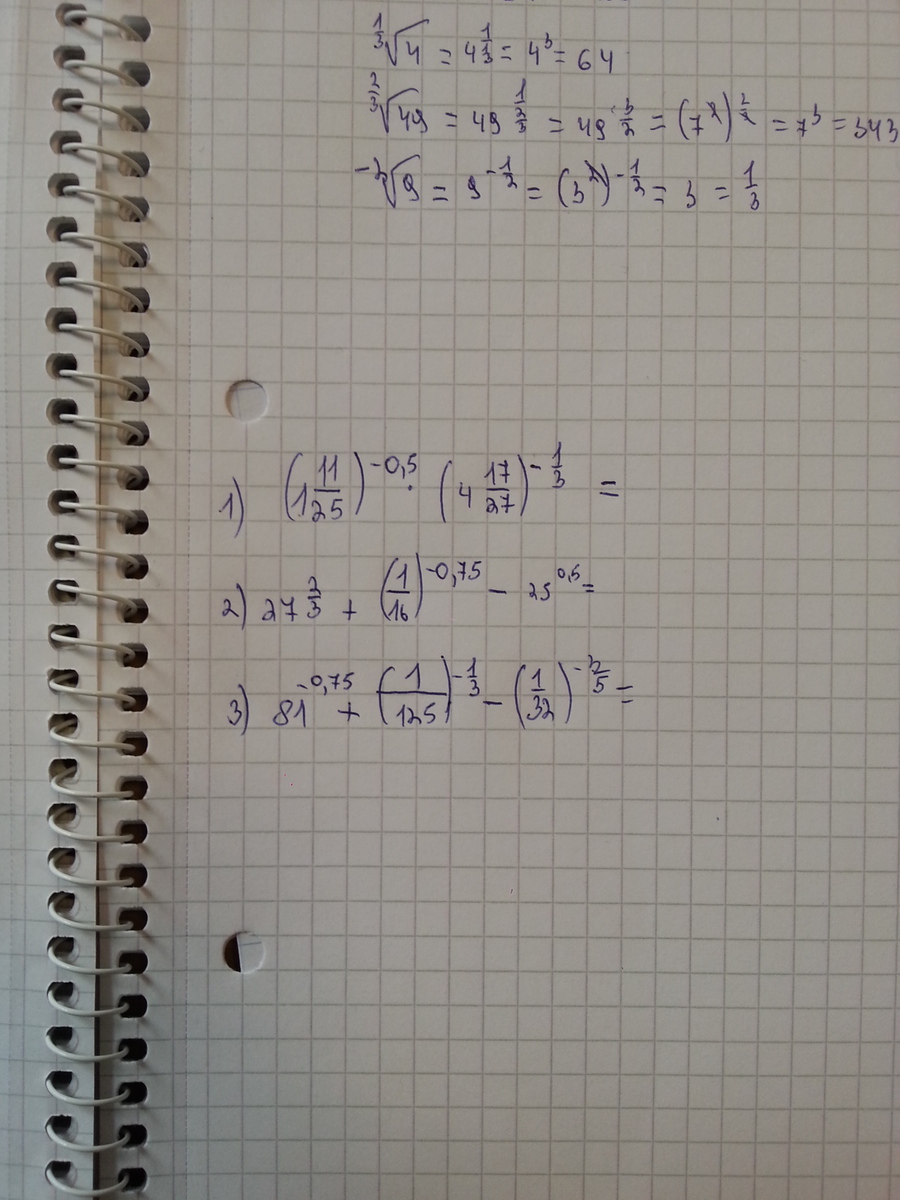 1/3√4 = 4^1/(1/3) = 4^3 = 64
2/3√49 = 49^1/(2/3) = 49^3/2 = (7^2)^3/2 = 7^3 = 343
-2√9 = 9^-1/2 = (3^2)^-1/2 = 3 = 1/3
1) (1 11/25)^-0,5 · (4 17/27)^-1/3 =
2) 27^2/3 + (1/16)^-0,75 - 25^0,5 =
3) 81^-0,75 + (1/125)^-1/3 - (1/32)^-3/5 =